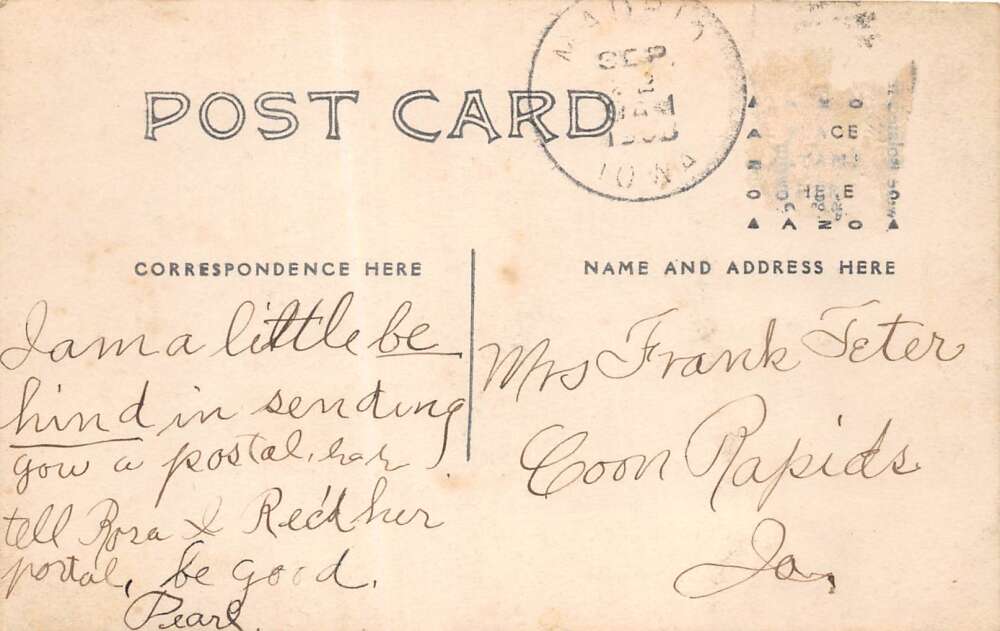 MADRID
SEP.
IOWA
POST CARD
AZO
PLACE
STAMP
HERE
AZO
CORRESPONDENCE HERE
NAME AND ADDRESS HERE
I am a little be
hind in sending
you a postal, har
tell Rosa I Rec'd her
postal, be good.
Pearl.
Mrs Frank Teter
Coon Rapids
Ia.